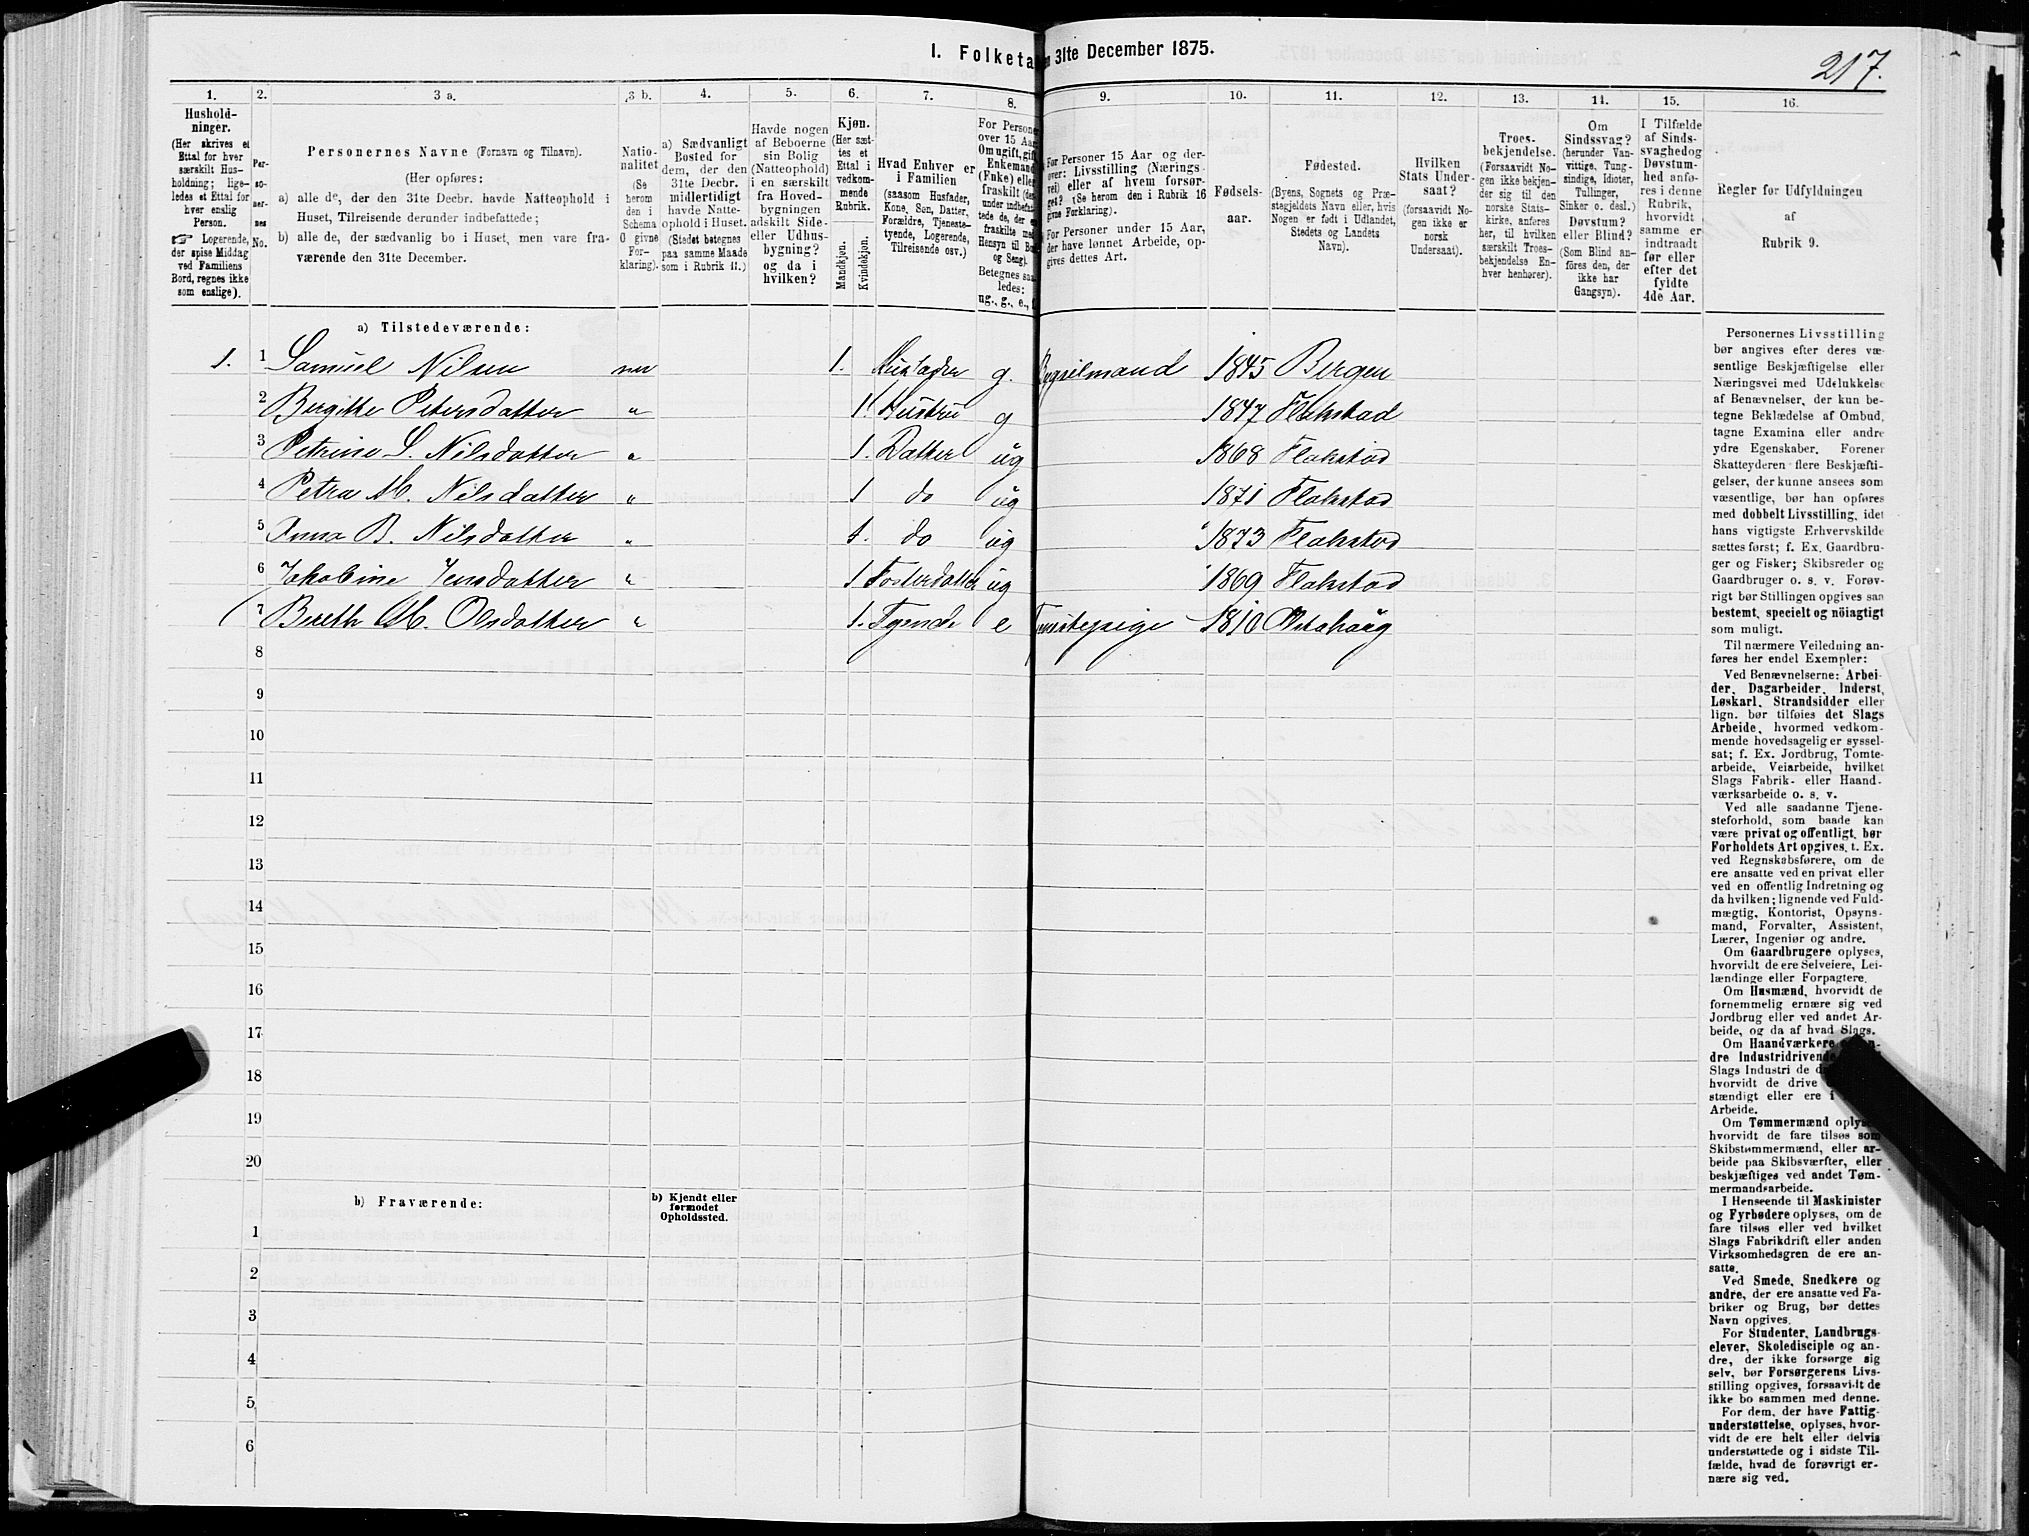 I. Folketa n 31te December 1875.
217.
1. 2. 3 a. 3 b. 4. 5. 6. 7. 8. 9. 10. 11. 12. 13. 14. 15. 16.
Hushold-
ninger.
(Her skrives et
Ettal for hver
særskilt Hus-
holdning; lige-
ledes et Ettal for
hver enslig
Person.
☞ Logerende,
der spise Middag
ved Familiens
Bord, regnes ikke
som enslige).
Per-
so-
ner-
nes
No.
Personernes Navne (Fornavn og Tilnavn).
(Her opføres:
a) alle de, der den 31te Decbr. havde Natteophold i
Huset, Tilreisende derunder indbefattede;
b) alle de, der sædvanlig bo i Huset, men vare fra-
værende den 31te December.
Natio-
nalitet
(Se
herom
den i
Schema
O givne
For-
klaring).
a) Sædvanligt
Bosted for
dem, der den
31te Decbr.
midlertidigt
havde Natte-
ophold i Huset.
(Stedet betegnes
paa samme Maade
som i Rubrik 11.)
Havde nogen
af Beboerne
sin Bolig
(Natteophold)
i en særskilt
fra Hoved-
bygningen
adskilt Side-
eller Udhus-
bygning?
og da i
hvilken?
Kjøn.
(Her sæt-
tes et
Ettal i
vedkom-
mende
Rubrik.
Mandkjøn.
Kvindekjøn.
Hvad Enhver er
i Familien
(saasom Husfader,
Kone, Søn, Datter,
Forældre, Tjeneste-
tyende, Logerende,
Tilreisende osv.)
For Persone
over 15 Aar
Om ugift, gift
Enkemand
(Enke) eller
fraskilt (der-
under indbefat-
tede de, der er
fraskilte med
Hensyn til Bo
og Seng).
Betegnes saa
ledes:
ug., g., e., f.
For Personer 15 Aar og der-
over: Livsstilling (Nærings-
vei) eller af hvem forsør-
get? (Se herom den i Rubrik 16
givne Forklaring).
For Personer under 15 Aar,
der have lønnet Arbeide, op-
gives dettes Art.
Fødsels-
aar.
Fødested.
(Byens, Sognets og Præ-
stegjeldets Navn eller, hvis
Nogen er født i Udlandet,
Stedets og Landets
Navn).
Hvilken
Stats Under-
saat?
(forsaavidt No-
gen ikke er
norsk
Undersaat).
Troes-
bekjendelse.
(Forsaavidt No-
gen ikke bekjen-
der sig til den
norske Stats-
kirke, anføres
her, til hvilken
særskilt Troes-
bekjendelse En-
hver henhører).
Om
Sindssvag?
(herunder Van-
vittige, Tung-
sindige, Idioter,
Tullinger,
Sinker o. desl.)
Døvstum?
eller Blind?
(Som Blind an-
føres den, der
ikke har
Gangsyn).
I Tilfælde
af Sinds-
svaghed og
Døvstum-
hed anfø-
res i denne
Rubrik,
hvorvidt
samme er
indtraadt
før eller
efter det
fyldte
4de Aar.
Regler for Udfyldningen
af
Rubrik 9.
a) Tilstedeværende:
1. 1 Samuel Nilsen nor 1. Husfader g. Bygselmand 1845 Bergen
2 Bergitte Petersdatter " 1. Hustru g 1847 Flakstad
3 Petrine S. Nilsdatter " 1. Datter ug 1868 Flakstad
4 Petra M. Nilsdatter " 1 do ug 1871 Flakstad
5 Anna B. Nilsdatter " 1. do ug 1873 Flakstad
6 Jakobine Jensdatter " 1 Fosterdatter ug 1869 Flakstad
7 Bereth M. Olsdatter " 1. Tyende e Tjenstepige 1810 Alstahoug
8
9
10
11
12
13
14
15
16
17
18
19
20
b) Fraværende:
b) Kjendt eller
formodet
Opholdssted.
1
2
3
4
5
6
Personernes Livsstilling
bør angives efter deres væ-
sentlige Beskjæftigelse eller
Næringsvei med Udelukkelse
af Benævnelser, der kun be-
tegne Beklædelse af Ombud,
tagne Examina eller andre
ydre Egenskaber. Forener
Skatteyderen flere Beskjæfti-
gelser, der kunne ansees som
væsentlige, bør han opføres
med dobbelt Livsstilling, idet
hans vigtigste Erhvervskilde
sættes først; f. Ex. Gaardbru-
ger og Fisker; Skibsreder og
Gaardbruger o. s. v. Forøv-
rigt bør Stillingen opgives saa
bestemt, specielt og nöiagtigt
som muligt.
Til nærmere Veiledning an-
føres her endel Exempler:
Ved Benævnelserne: Arbei-
der, Dagarbeider, Inderst,
Løskarl, Strandsidder eller
lign. bør tilføies det Slags
Arbeide, hvormed vedkom-
mende hovedsagelig er syssel-
sat; f. Ex. Jordbrug, Tomte-
arbeide, Veiarbeide, hvilket
Slags Fabrik- eller Haand-
værksarbeide o. s. v.
Ved alle saadanne Tjene-
steforhold, som baade kan
være privat og offentligt, bør
Forholdets Art opgives, t. Ex.
ved Regnskabsførere, om de
ere ansatte ved en privat eller
ved en offentlig Indretning og
da hvilken; lignende ved Fuld-
mægtig, Kontorist, Opsyns-
mand, Forvalter, Assistent,
Lærer, Ingeniør og andre.
Om Gaardbrugere oplyses,
hvorvidt de ere Selveiere, Lei-
lændinge eller Forpagtere.
Om Husmænd, hvorvidt de
fornemmelig ernære sig ved
Jordbrug eller ved andet Ar-
beide, og da af hvad Slags.
Om Haandværkere n-
dre Industridrivende
Slags Industri de d
hvorvidt de drive
stændigt eller ere i
Arbeide.
Om Tømmermænd oplyse
hvorvidt de fare tilsøs som
Skibstømmermænd, eller ar-
beide paa Skibsværfter, eller
beskjæftiges ved andet Tøm-
mermandsarbeide.
I Henseende til Maskinister
og Fyrbødere oplyses, om de
fare tilsøs eller ved hvilket
Slags Fabrikdrift eller anden
Virksomhedsgren de ere an-
satte.
Ved Smede, Snedkere og
andre, der ere ansatte ved Fa-
briker og Brug, bør dettes
Navn opgives.
For Studenter, Landbrugs-
elever, Skoledisciple og an-
dre, der ikke forsørge sig
selv, bør Forsørgerens Livs-
stilling opgives, forsaavidt de
ikke bo sammen med denne.
For dem, der have Fattig-
understøttelse, oplyses, hvor-
vidt de ere helt eller delvis
understøttede og i sidste Til-
fælde, hvad de forøvrigt er-
nære sig ved.